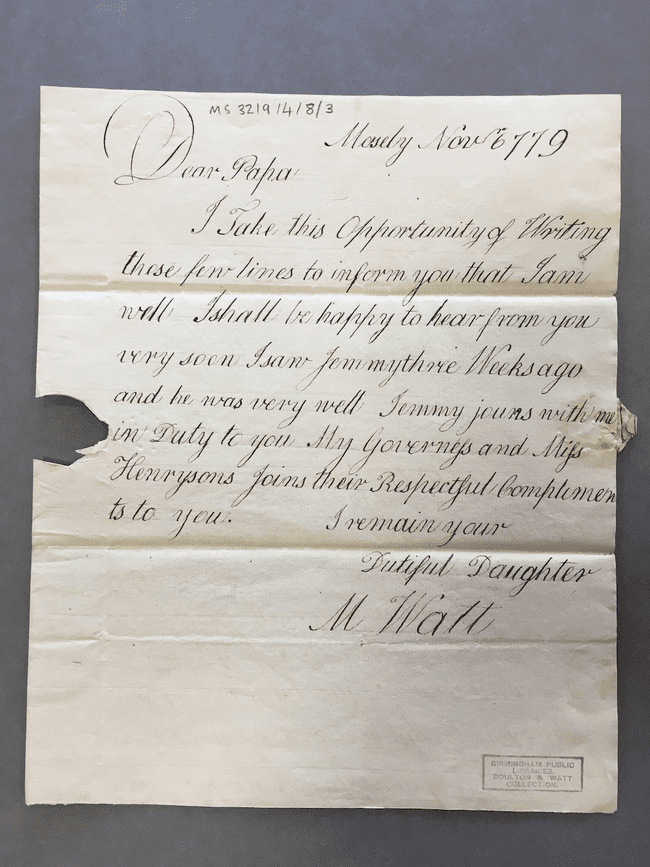 MS 3219/4/8/3
Mosely Novr 6 779
Dear Papa
I Take this Opportunity of Writing
these few lines to inform you that I am
well I shall be happy to hear from you
very soon I saw Jemmy three Weeks ago
and he was very well Jemmy jouns with me
in Duty to you My Governess and Miss
Henrysons Joins their Respectful Complimen
ts to you. I remain your
Dutiful Daughter
M Watt
BIRMINGHAM PUBLIC
LIBRARIES.
BOULTON & WATT
COLLECTION.